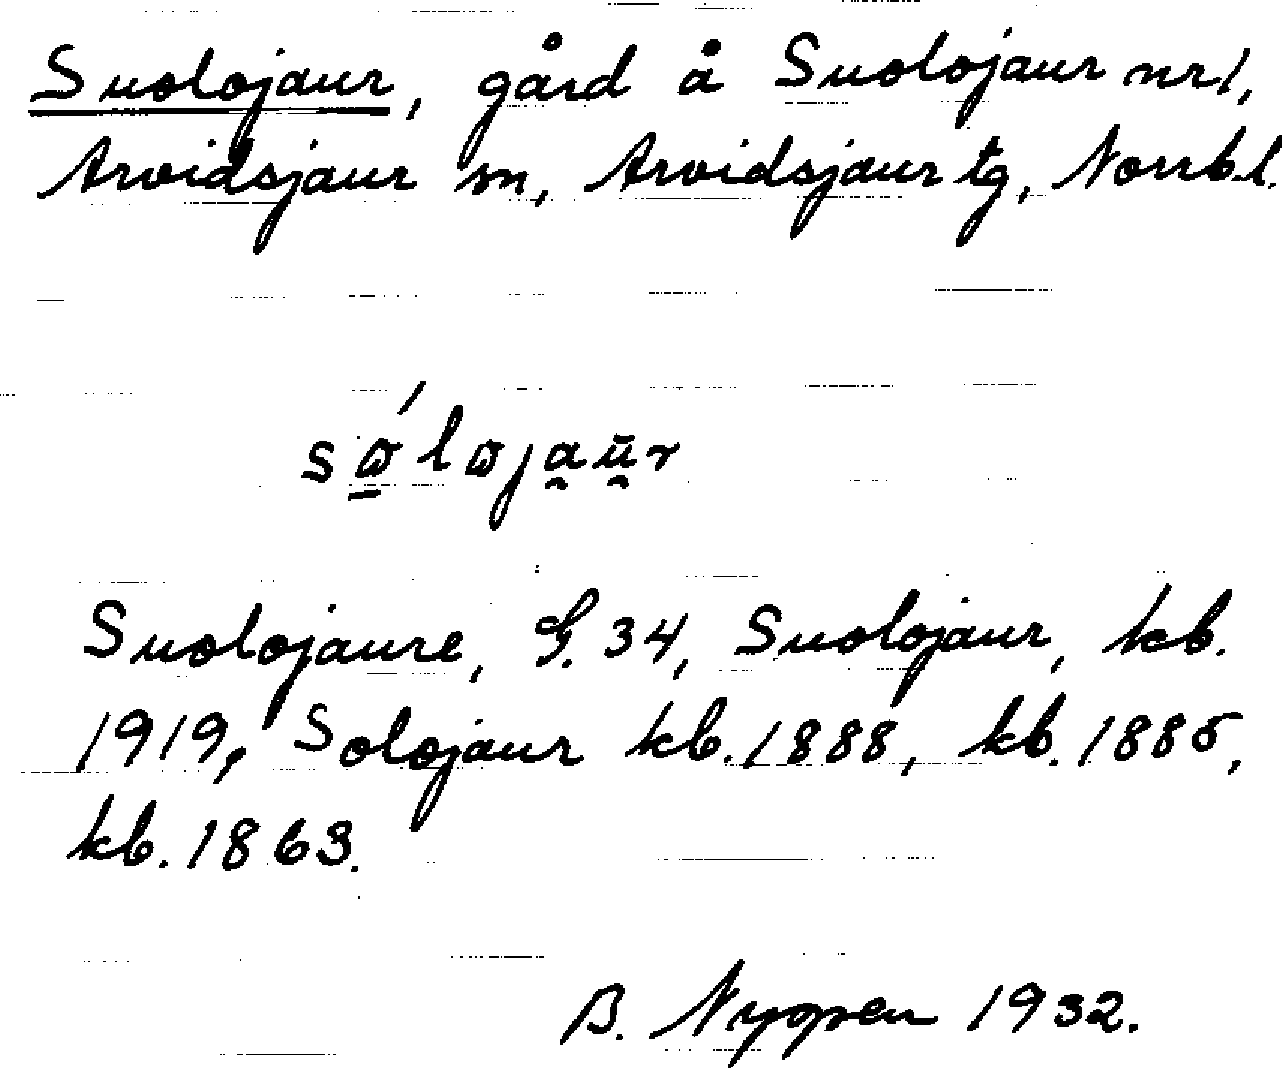 Suolojaur, gård å Suolojaur nr 1,
Arvidsjaur sn, Arvidsjaur tg, Norrb. l.
Suolojaure, G. 34, Suolojaur, kb.
1919, Solojaur kb. 1888, kb. 1885,
kb. 1863.
B. 1932.